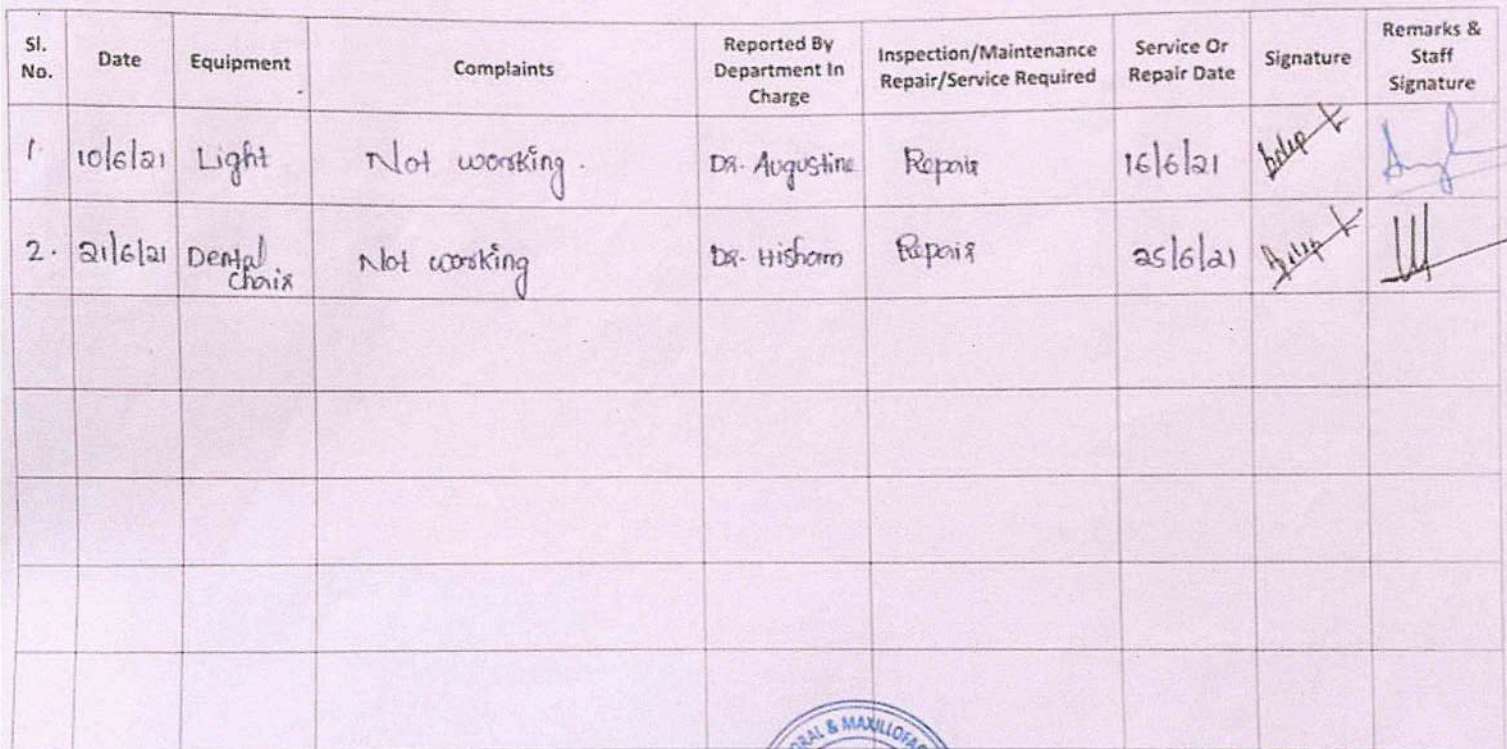 Sl. No. Date Equipment Complaints Reported By Department In Charge Inspection/Maintenance Repair/Service Required Service Or Repair Date Signature Remarks & Staff Signature
1. 10/6/21 Light Not working. Dr. Augustine Repair 16/6/21
2. 21/6/21 Dental Chair Not working Dr. Hisham Repair 25/6/21
ORAL & MAXILLOFAC